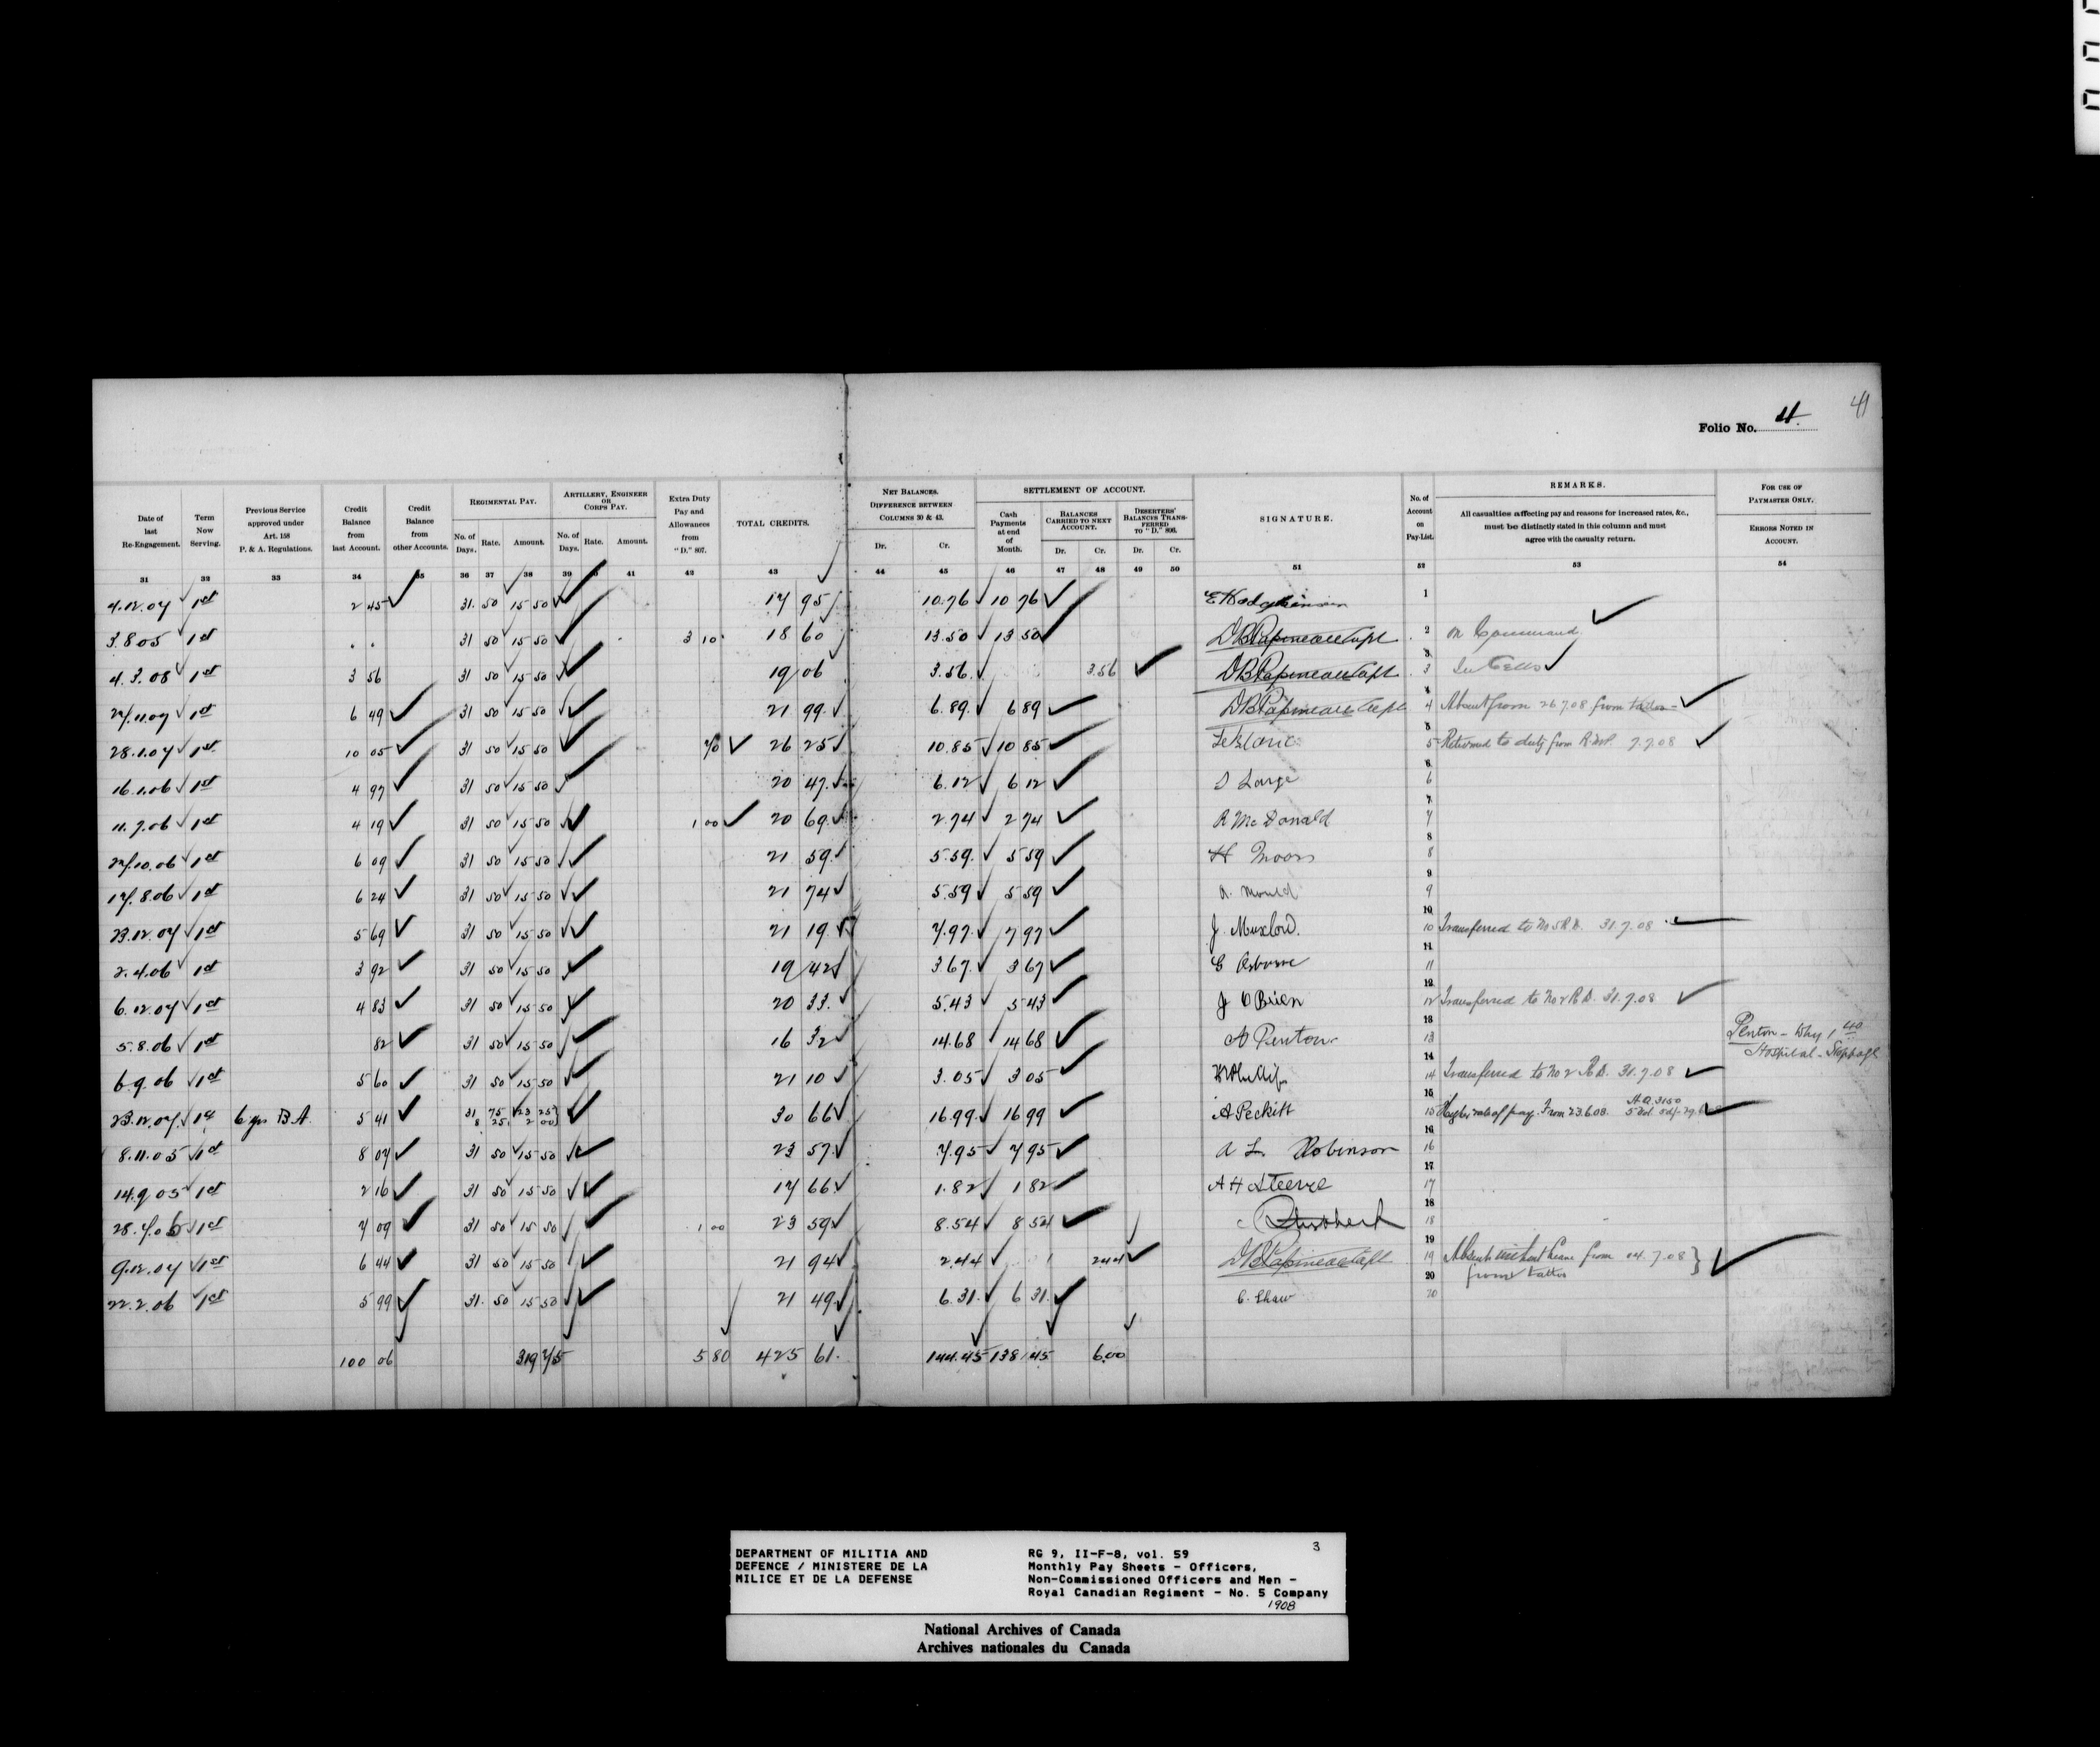 41
Folio No. 4.
Date of last Re-Engagement.
Term Now Serving.
Previous Service approved under Art. 158 P. & A. Regulations.
Credit Balance from last Account.
Credit Balance from other Accounts.
REGIMENTAL PAY.
No. of Days. Rate. Amount.
ARTILLERY, ENGINEER OR CORPS PAY.
No. of Days. Rate. Amount.
Extra Duty Pay and Allowances from "D." 807.
TOTAL CREDITS.
NET BALANCES.
DIFFERENCE BETWEEN COLUMNS 30 & 43.
Dr. Cr.
SETTLEMENT OF ACCOUNT.
Cash Payments at end of Month.
BALANCES CARRIED TO NEXT ACCOUNT.
Dr. Cr.
DESERTERS' BALANCES TRANSFERRED TO "D." 806.
Dr. Cr.
SIGNATURE.
No. of Account on Pay-List.
REMARKS.
All casualties affecting pay and reasons for increased rates, &c., must be distinctly stated in this column and must agree with the casualty return.
FOR USE OF PAYMASTER ONLY.
ERRORS NOTED IN ACCOUNT.
31 32 33 34 35 36 37 38 39 41 42 43 44 45 46 47 48 49 50 51 52 53 54
4.12.07 1st 2 45 31. 50 15 50 17 95 10.76 10 76 E Hodgkinson 1
3.8.05 1st 31 50 15 50 3 10 18 60 13.50 13 50 D B Papineau Capt 2 On Command
4.3.08 1st 3 56 31 50 15 50 19 06 3.56 3.56 D B Papineau Capt 3 In Cells
27.11.07 1st 6 49 31 50 15 50 21 99 6.89 6 89 D B Papineau Capt 4 Absent from 26 7.08 from tattoo
28.1.07 1st 10 05 31 50 15 50 70 26 25 10.85 10 85 LeBlanc 5 Returned to duty from 7.7.08
16.1.06 1st 4 97 31 50 15 50 20 47 6.12 6 12 Large 6
11.7.06 1st 4 19 31 50 15 50 1 00 20 69 2.74 2 74 R McDonald 7
27.10.06 1st 6 09 31 50 15 50 21 59 5.59 5 59 H Moors 8
17.8.06 1st 6 24 31 50 15 50 21 74 5.59 5 59 A. Mould 9
23.12.07 1st 5 69 31 50 15 50 21 19 7.97 7 97 J. Muxlow. 10 Transferred to No 5 R.D. 31.7.08
2.4.06 1st 3 92 31 50 15 50 19 42 3.67 3 67 G Osborne 11
6.12.07 1st 4 83 31 50 15 50 20 33 5.43 5 43 J O Brien 12 Transferred to No 2 R.D. 31.7.08
5.8.06 1st 82 31 50 15 50 16 32 14.68 14 68 A Penton 13 Penton - Why 1 40 Hospital - Stoppage
6.9.06 1st 5 60 31 50 15 50 21 10 3.05 3 05 Phillips 14 Transferred to No 2 R.D. 31.7.08
23.12.07 1st 6 yrs B.A. 5 41 31 75 23 25 30 66 16.99 16 99 A Peckitt 15 Higher rate of pay. From 23.6.08. H.Q. 3150
8 25 2 00
8.11.05 1st 8 07 31 50 15 50 23 57 7.95 7 95 A L. Robinson 16
14.9.05 1st 2 16 31 50 15 50 17 66 1.82 1 82 A H Steeve 17
28.7.05 1st 7 09 31 50 15 50 1 00 23 59 8.54 8 54 C Shepherd 18
9.12.07 1st 6 44 31 50 15 50 21 94 2.44 2 44 D B Papineau Capt 19 Absent without leave from 04.7.08
from tattoo
22.2.06 1st 5 99 31. 50 15 50 21 49 6.31 6 31 C. Shaw 20
100 06 319 75 5 80 425 61. 144.45 138 45 6.00
DEPARTMENT OF MILITIA AND
DEFENCE / MINISTERE DE LA
MILICE ET DE LA DEFENSE
RG 9, II-F-8, vol. 59 3
Monthly Pay Sheets - Officers,
Non-Commissioned Officers and Men -
Royal Canadian Regiment - No. 5 Company
1908
National Archives of Canada
Archives nationales du Canada